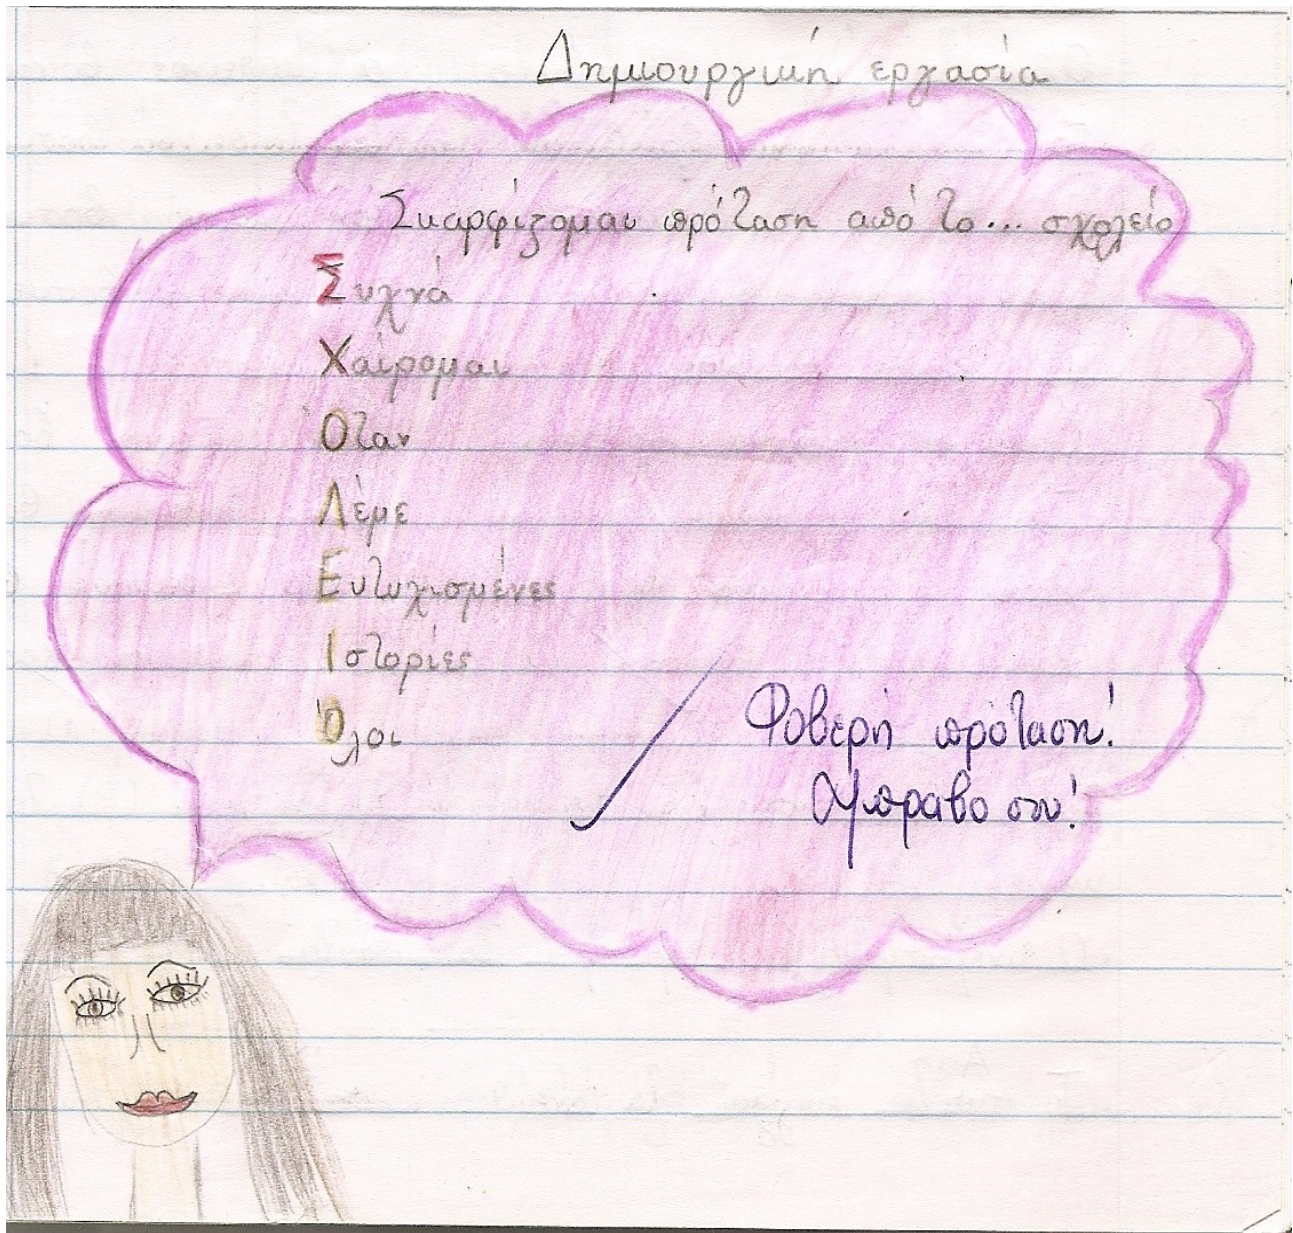 Δημιουργική εργασία
Σκαρφίζομαι πρόταση από το... σχολείο
Συχνά
Χαίρομαι
Όταν
Λέμε
Ευτυχισμένες
Ιστορίες
Όλοι
Φοβερή πρόταση!
Μπράβο σου!